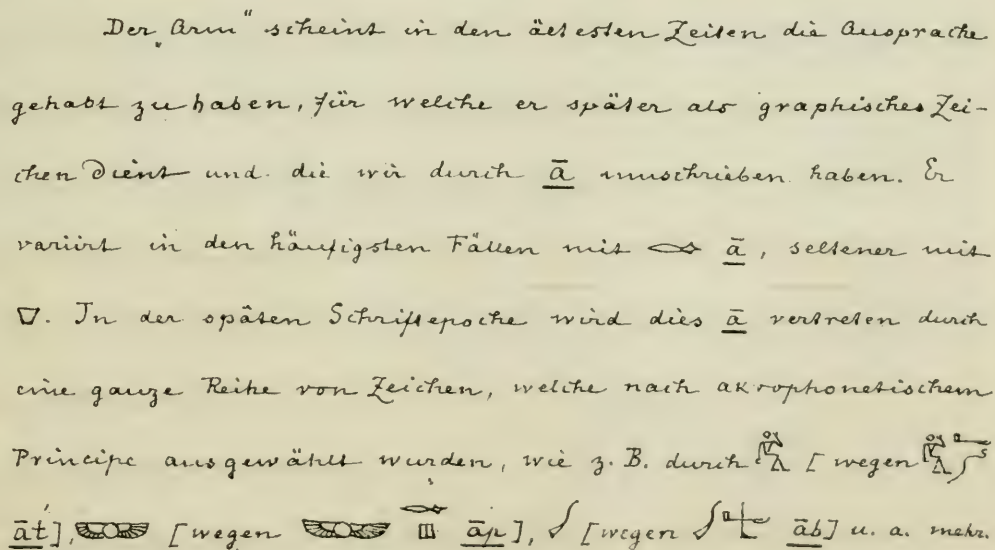 Der „Arm“ scheint in den ältesten Zeiten die Aussprache
gehabt zu haben, für welche er später als graphisches Zei-
chen dient und die wir durch ā umschrieben haben. Er
variirt in den häufigsten Fällen mit ā, seltener mit
. In der späten Schriftepoche wird dies ā vertreten durch
eine ganze Reihe von Zeichen, welche nach akrophonetischem
Principe ausgewählt wurden, wie z. B. durch [wegen
āt], [wegen āp], [wegen āb] u. a. mehr.